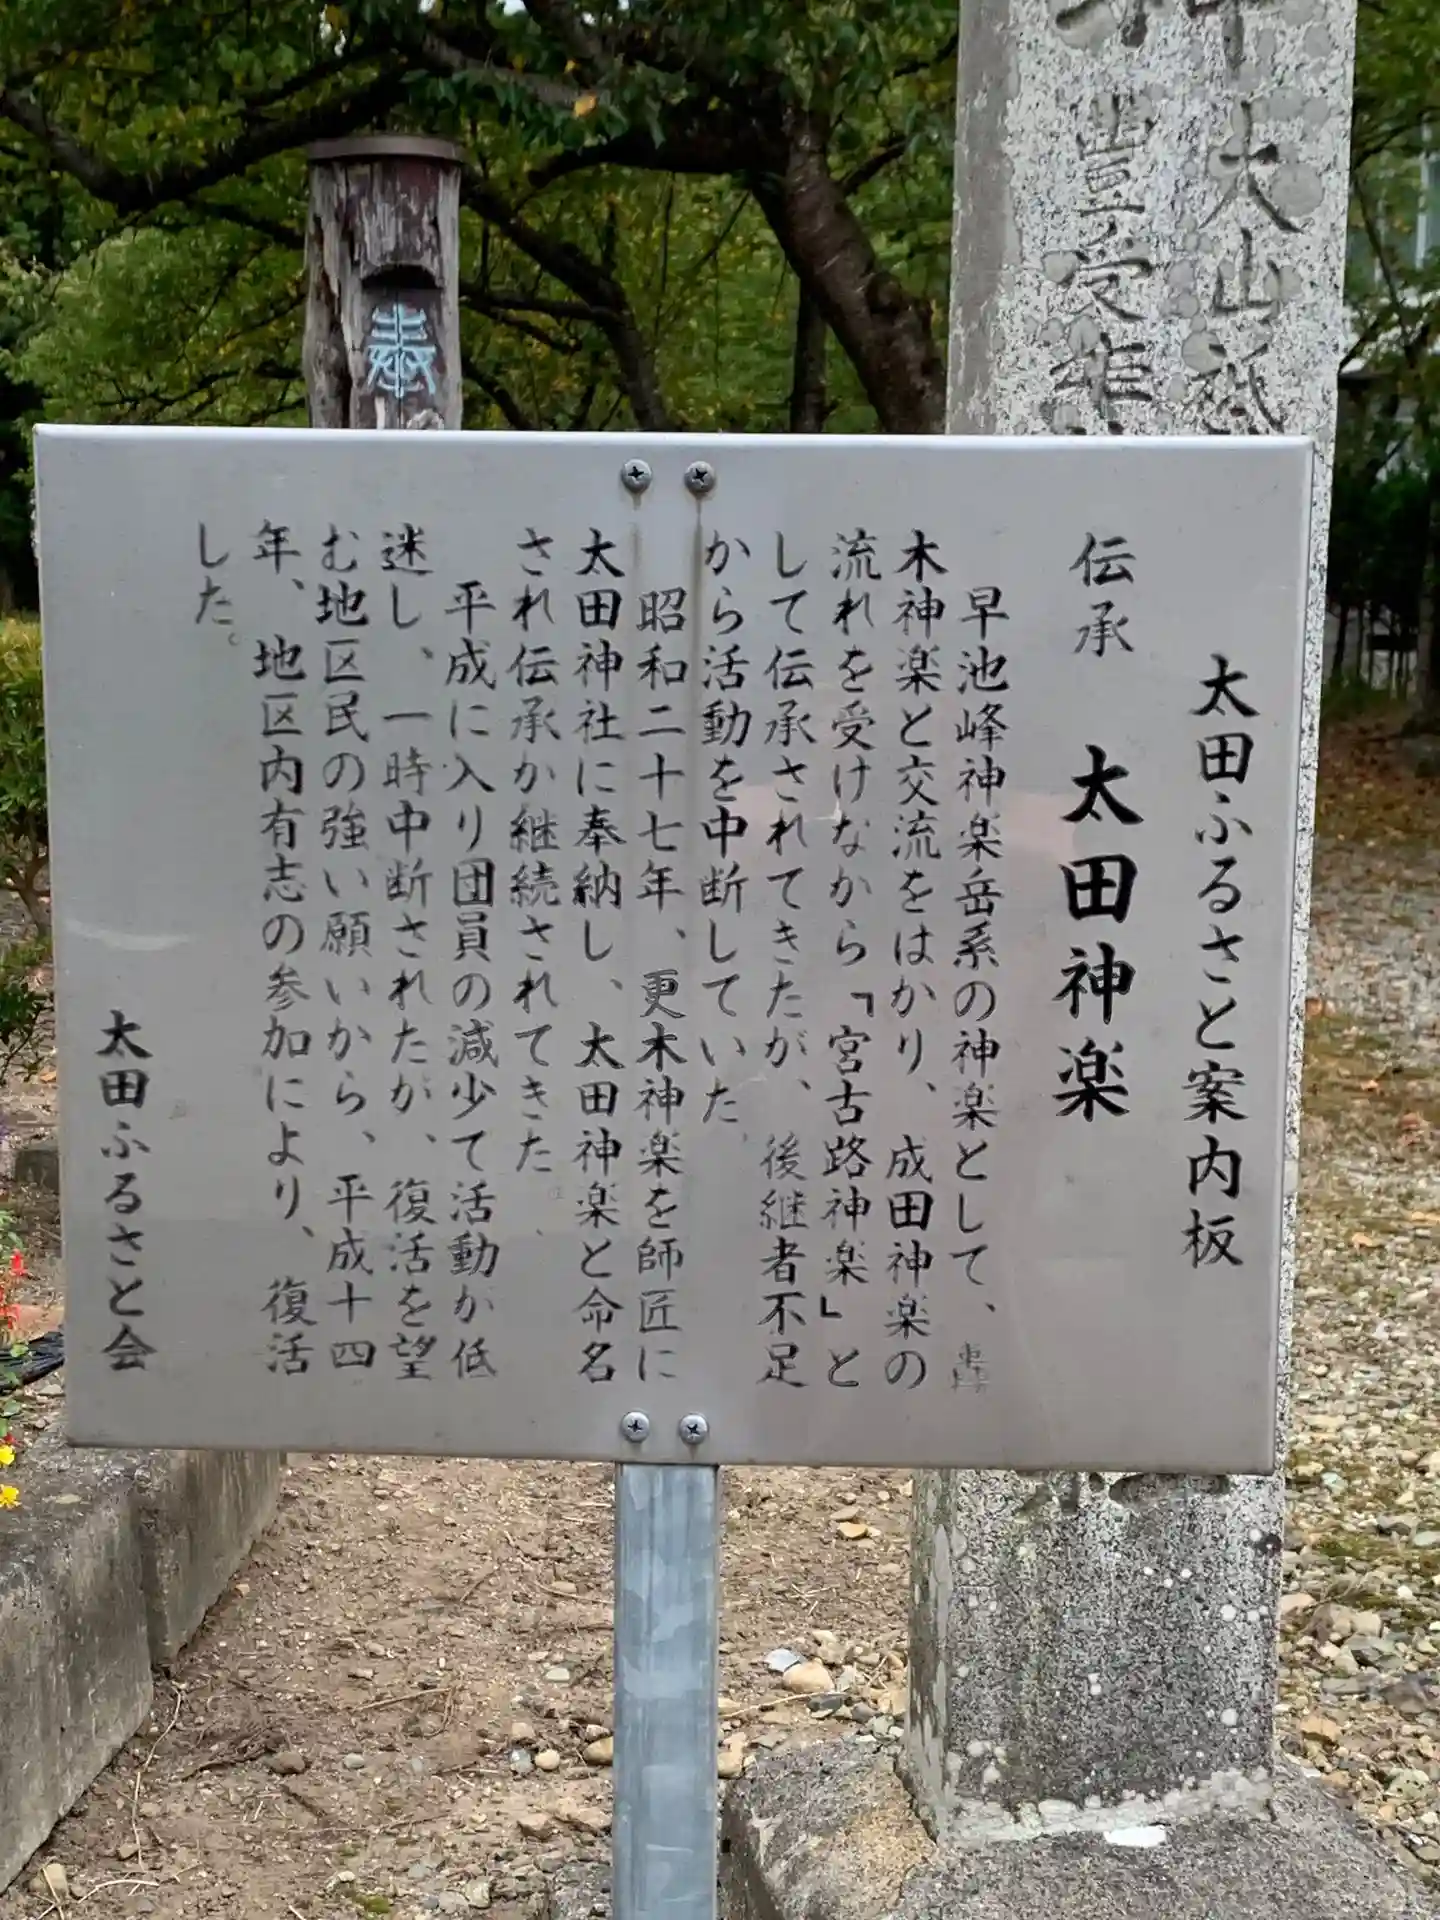 太田ふるさと案内板
伝承　太田神楽
早池峰神楽岳系の神楽として、
木神楽と交流をはかり、成田神楽の
流れを受けなから「宮古路神楽」と
して伝承されてきたが、後継者不足
から活動を中断していた
昭和二十七年、更木神楽を師匠に
太田神社に奉納し、太田神楽と命名
され伝承か継続されてきた
平成に入り団員の減少て活動か低
迷し、一時中断されたが、復活を望
む地区民の強い願いから、平成十四
年、地区内有志の参加により、復活
した。
太田ふるさと会
大山祇
豊受
奉